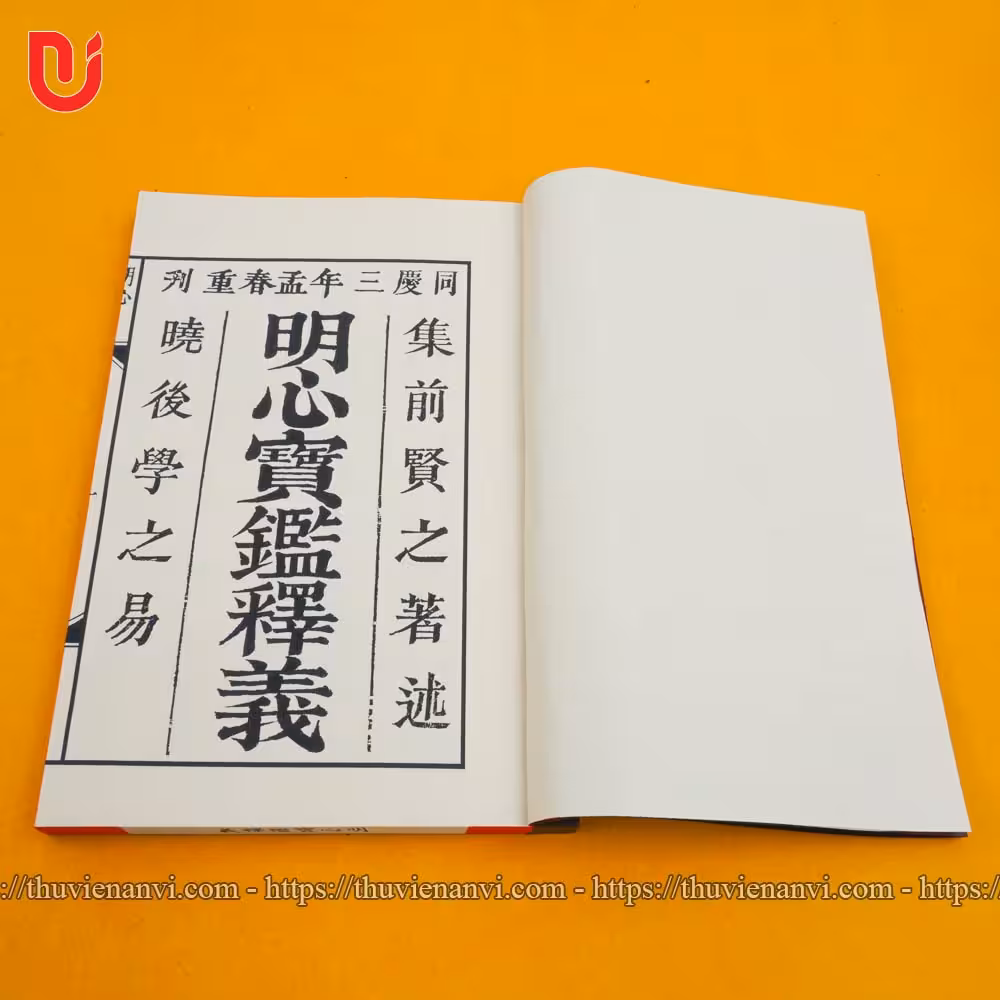 同慶三年孟春重刋
集前賢之著述
明心寶鑑釋義
曉後學之易
明心
明心寶鑑釋義
://thuvienanvi.com - https://thuvienanvi.com - https://thuvienanvi.com - https:/